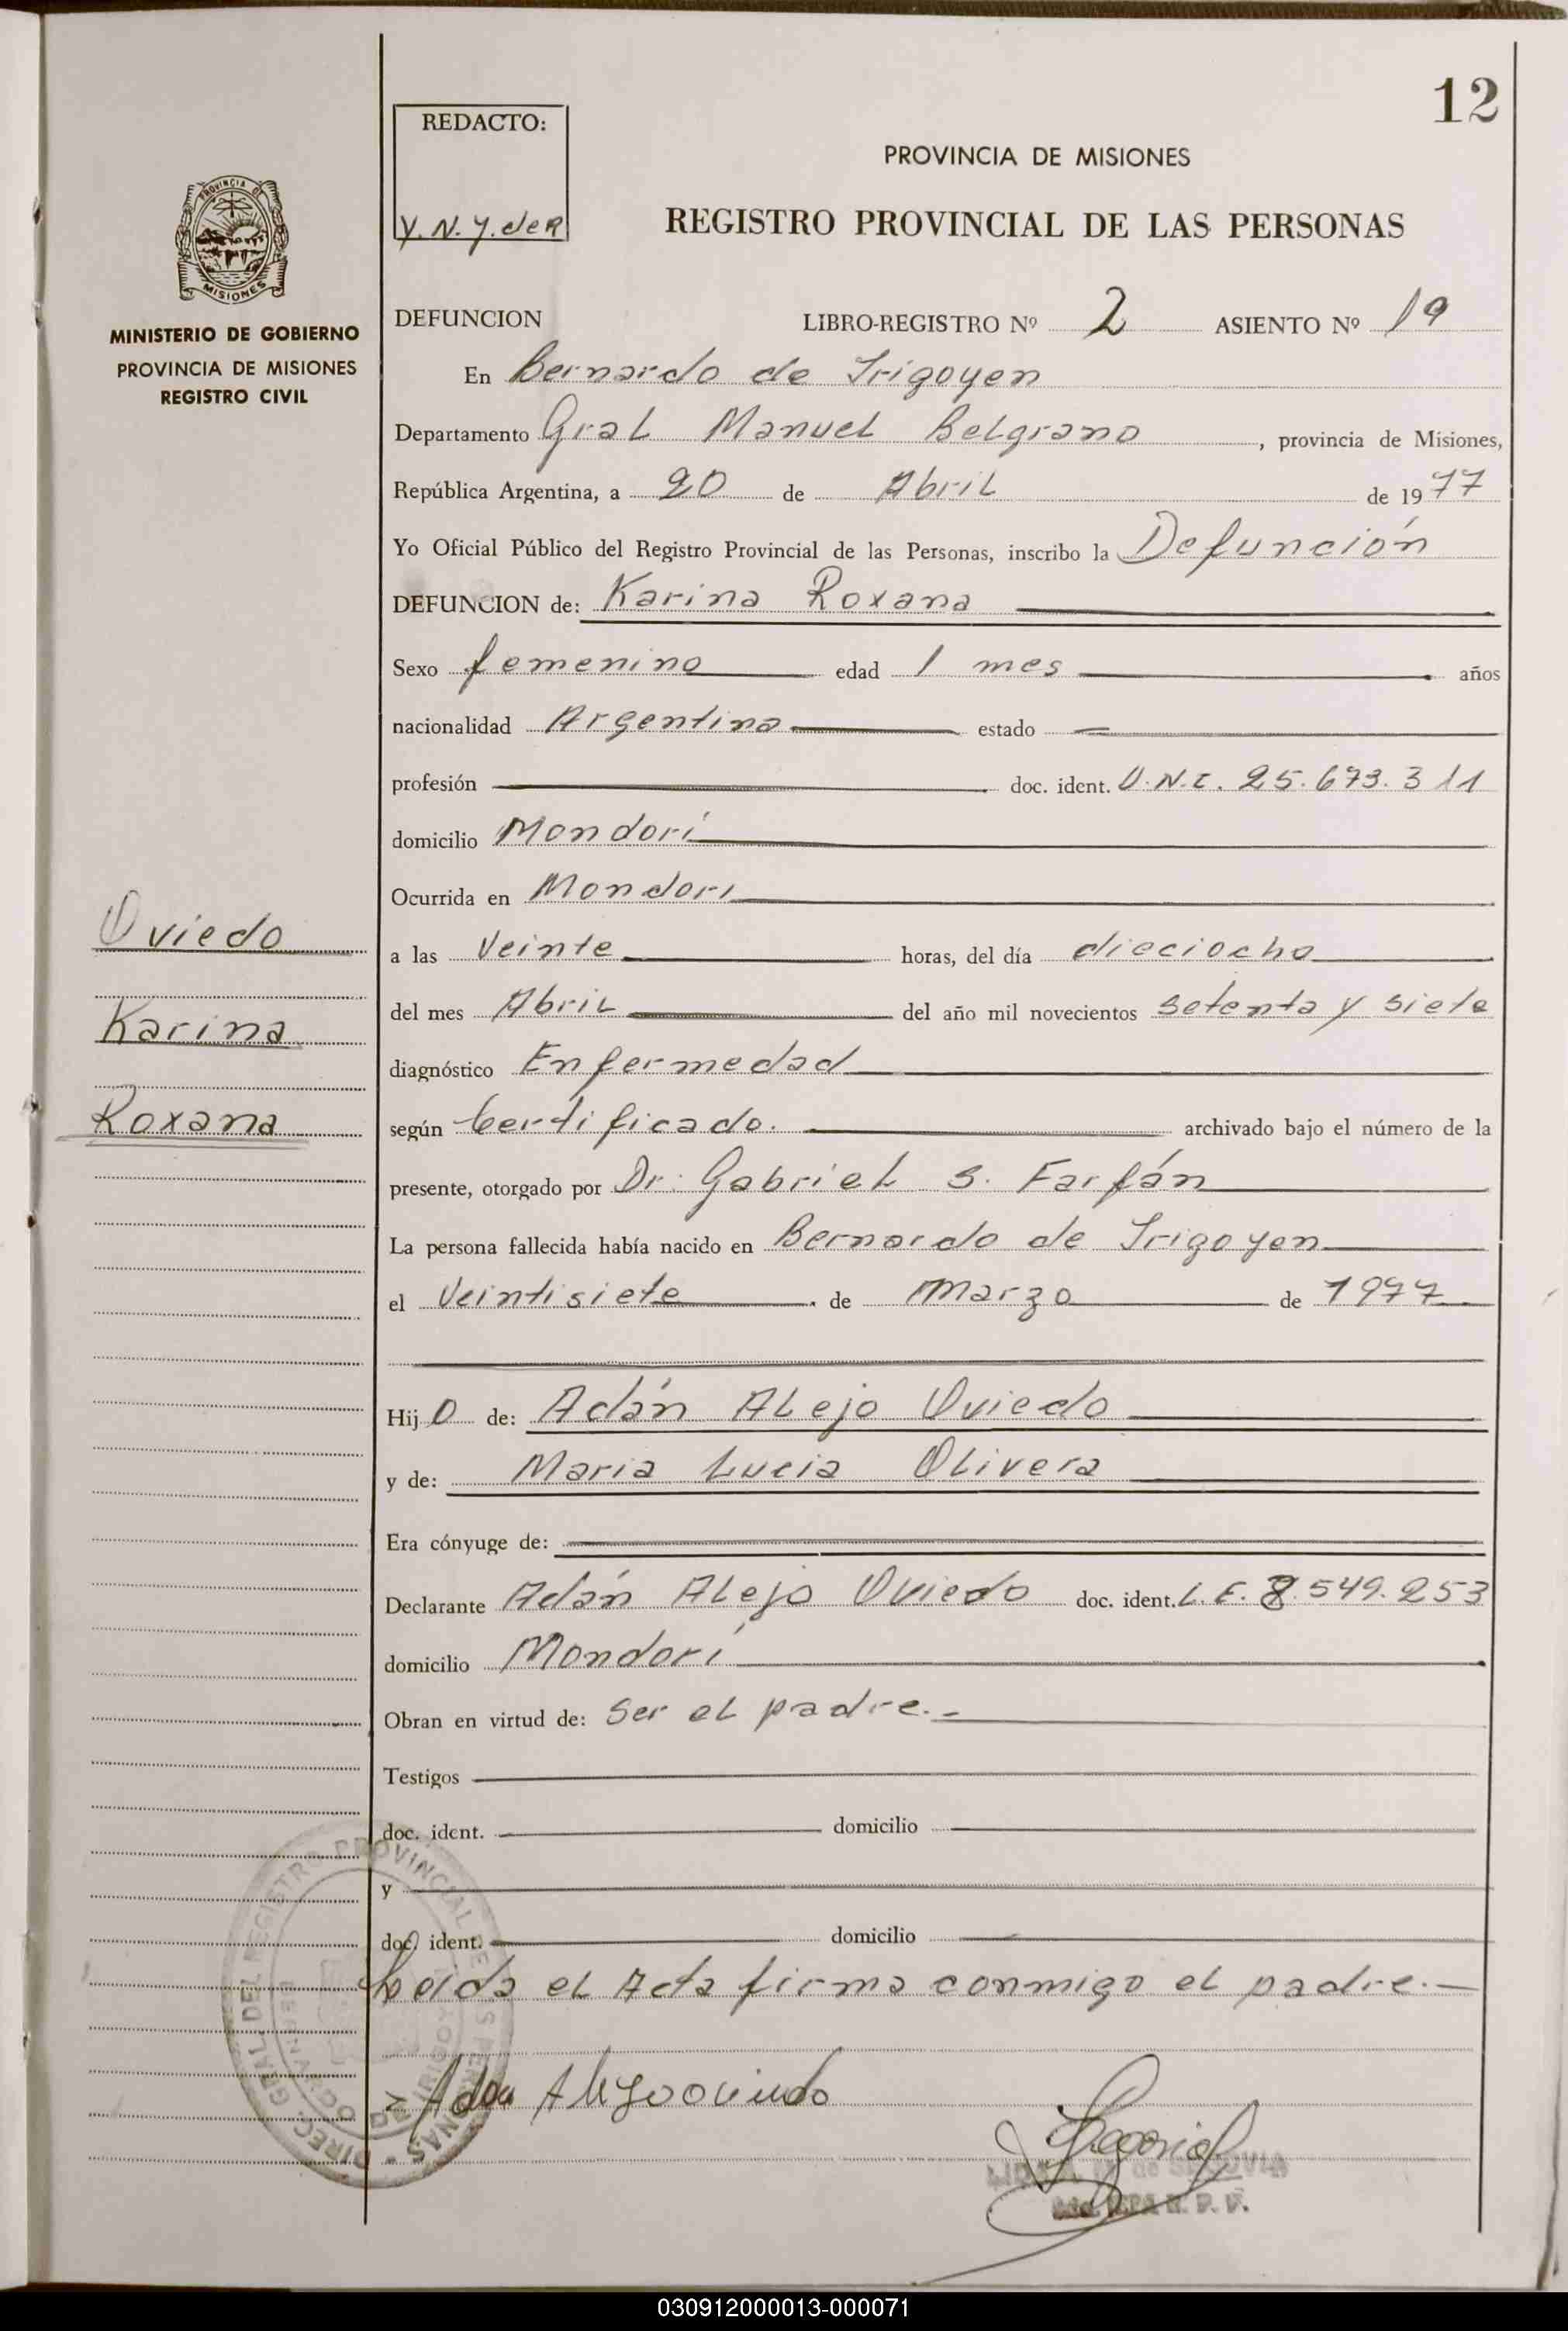 12
REDACTO:
Y. N. Y. de R
PROVINCIA DE MISIONES
REGISTRO PROVINCIAL DE LAS PERSONAS
PROVINCIA DE
MISIONES
MINISTERIO DE GOBIERNO
PROVINCIA DE MISIONES
REGISTRO CIVIL
DEFUNCION LIBRO-REGISTRO Nº 2 ASIENTO Nº 19
En Bernardo de Irigoyen
Departamento Gral Manuel Belgrano, provincia de Misiones,
República Argentina, a 20 de Abril de 1977
Yo Oficial Público del Registro Provincial de las Personas, inscribo la Defunción
DEFUNCION de: Karina Roxana
Sexo femenino edad 1 mes años
nacionalidad Argentina estado
profesión doc. ident. D.N.I. 25.673.311
domicilio Mondorí
Ocurrida en Mondori
Oviedo
Karina
Roxana
a las Veinte horas, del día dieciocho
del mes Abril del año mil novecientos setenta y siete
diagnóstico Enfermedad
según Certificado. archivado bajo el número de la
presente, otorgado por Dr. Gabriel S. Farfán
La persona fallecida había nacido en Bernardo de Irigoyen
el Veintisiete de Marzo de 1977
Hij O de: Adán Alejo Oviedo
y de: Maria Lucia Olivera
Era cónyuge de:
Declarante Adán Alejo Oviedo doc. ident. L.E. 8.549.253
domicilio Mondorí
Obran en virtud de: ser el padre.-
Testigos
doc. ident. domicilio
y
doc. ident. domicilio
Leida el Acta firma conmigo el padre.-
DIREC. GRAL. DEL REGISTRO PROVINCIAL DE LAS PERSONAS
BERNARDO DE IRIGOYEN
de SEGOVIA
030912000013-000071